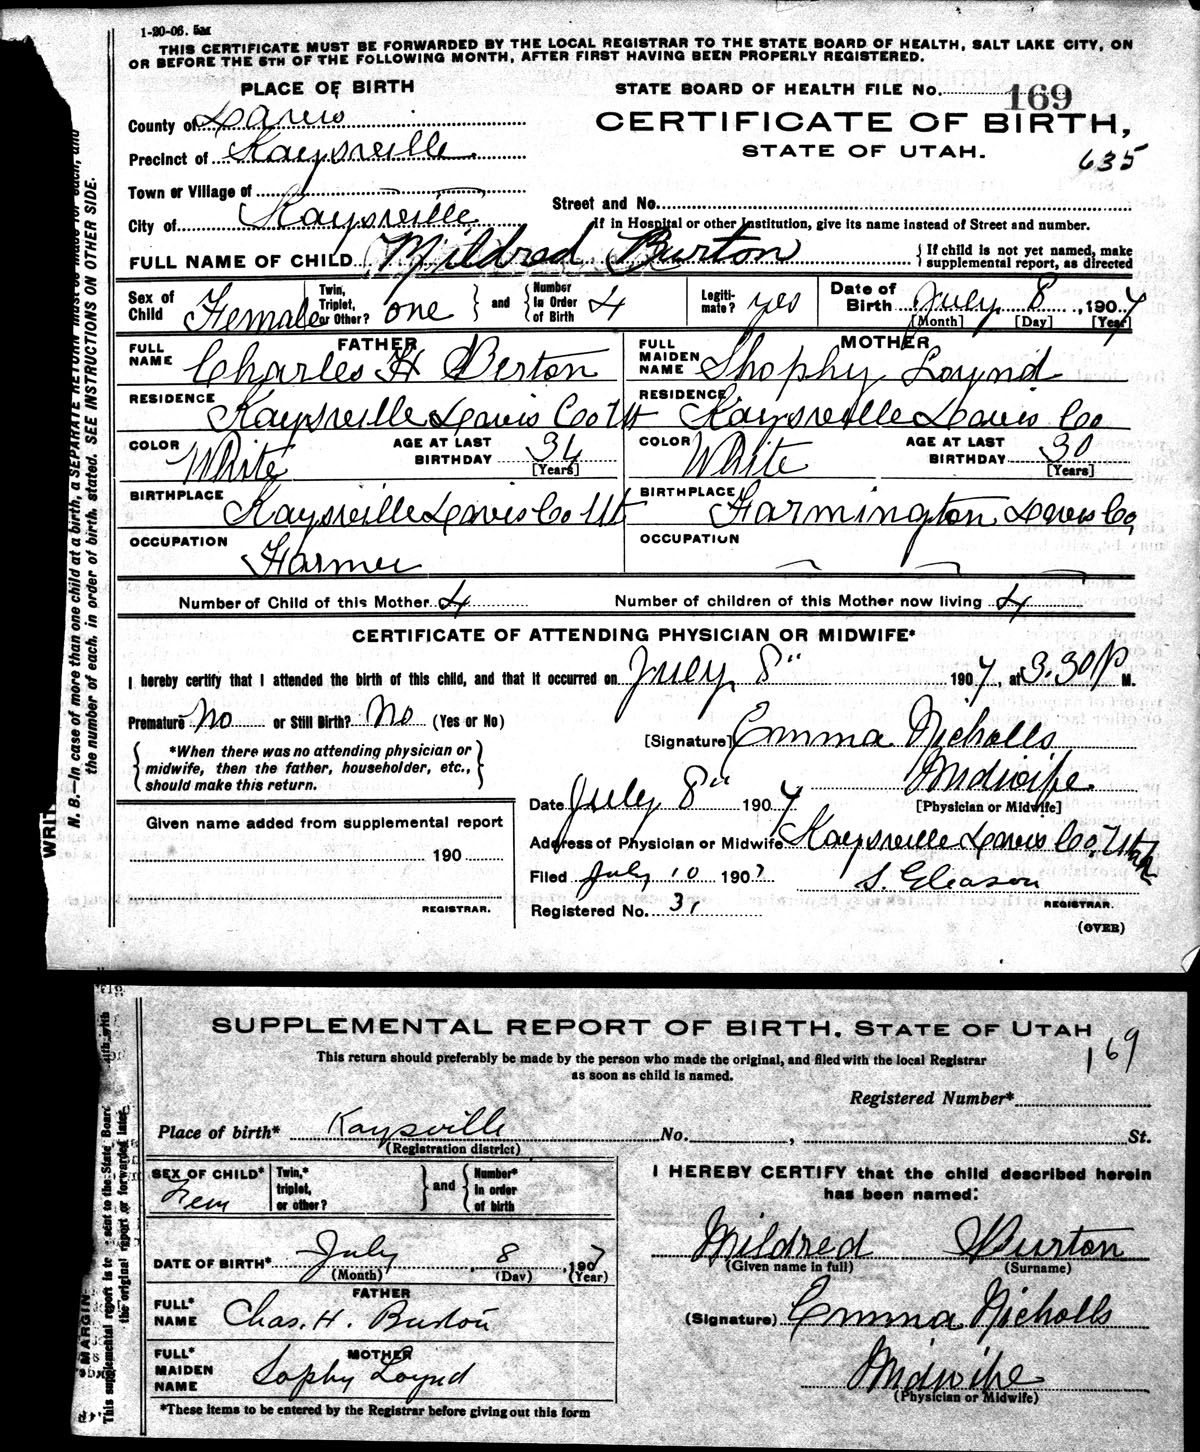 1-20-06. 5m
THIS CERTIFICATE MUST BE FORWARDED BY THE LOCAL REGISTRAR TO THE STATE BOARD OF HEALTH, SALT LAKE CITY, ON
OR BEFORE THE 5TH OF THE FOLLOWING MONTH, AFTER FIRST HAVING BEEN PROPERLY REGISTERED.
PLACE OF BIRTH
STATE BOARD OF HEALTH FILE No. 169
County of Davis
CERTIFICATE OF BIRTH,
STATE OF UTAH.
635
Precinct of Kaysville
Town or Village of
Street and No.
City of Kaysville
If in Hospital or other Institution, give its name instead of Street and number.
FULL NAME OF CHILD Mildred Burton { If child is not yet named, make supplemental report, as directed
Sex of Child Female Twin, Triplet, or Other? one } and { Number in Order of Birth 4 Legiti-mate? yes Date of Birth July 8, 1907
[Month] [Day] [Year]
FATHER MOTHER
FULL NAME Charles H Berton FULL MAIDEN NAME Shophy Loynd
RESIDENCE Kaysville Davis Co Ut RESIDENCE Kaysville Davis Co
COLOR White AGE AT LAST BIRTHDAY 34 [Years] COLOR White AGE AT LAST BIRTHDAY 30 [Years]
BIRTHPLACE Kaysville Davis Co Ut BIRTHPLACE Farmington Davis Co,
OCCUPATION Farmer OCCUPATION
Number of Child of this Mother 4 Number of children of this Mother now living 4
CERTIFICATE OF ATTENDING PHYSICIAN OR MIDWIFE*
I hereby certify that I attended the birth of this child, and that it occurred on July 8" 1907, at 3.30 P M.
Premature No or Still Birth? No (Yes or No)
[Signature] Emma Nicholls
*When there was no attending physician or
midwife, then the father, householder, etc.,
should make this return.
Midwife
[Physician or Midwife]
Date July 8" 1907
Given name added from supplemental report
190
REGISTRAR.
Address of Physician or Midwife Kaysville Davis Co, Utah
Filed July 10 1907 S. Gleason
REGISTRAR.
Registered No. 31
(OVER)
N. B.—In case of more than one child at a birth, a SEPARATE RETURN must be made for each, and
the number of each, in order of birth, stated. SEE INSTRUCTIONS ON OTHER SIDE.
WRIT
SUPPLEMENTAL REPORT OF BIRTH, STATE OF UTAH
169
This return should preferably be made by the person who made the original, and filed with the local Registrar
as soon as child is named.
Registered Number*
Place of birth* Kaysville No. , St.
(Registration district)
SEX OF CHILD* Fem Twin,* triplet, or other? } and { Number* in order of birth
I HEREBY CERTIFY that the child described herein
has been named:
DATE OF BIRTH* July 8, 1907
(Month) (Day) (Year)
Mildred Burton
(Given name in full) (Surname)
FATHER
FULL* NAME Chas. H. Burton
(Signature) Emma Nicholls
MOTHER
FULL* MAIDEN NAME Sophy Loynd
Midwife
(Physician or Midwife)
*These items to be entered by the Registrar before giving out this form
MARGIN
This supplemental report is to sent to the State Board with
the original report or forwarded later.